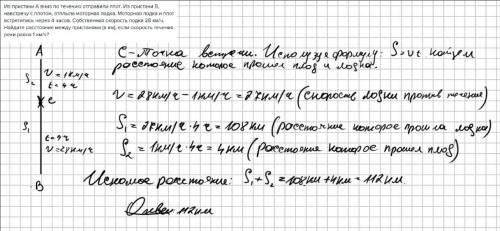 Из пристани А вниз по течению отправили плот. Из пристани В,
навстречу с плотом, отплыла моторная лодка. Моторная лодка и плот
встретились через 4 часов. Собственная скорость лодки 28 км/ч.
Найдите расстояние между пристанями (в км), если скорость течения
реки равна 1 км/ч?
A
S2
v = 1км/ч
t = 4ч
C
S1
t = 4ч
v = 28км/ч
B
C - точка встречи. Используя формулу: S = vt найдем
расстояние которое прошел плот и лодка.
v = 28км/ч - 1км/ч = 27км/ч (скорость лодки против течения)
S1 = 27км/ч · 4ч = 108 км (расстояние которое прошла лодка)
S2 = 1км/ч · 4ч = 4км (расстояние которое прошел плот)
Искомое расстояние: S1 + S2 = 108км + 4км = 112 км.
Ответ: 112 км